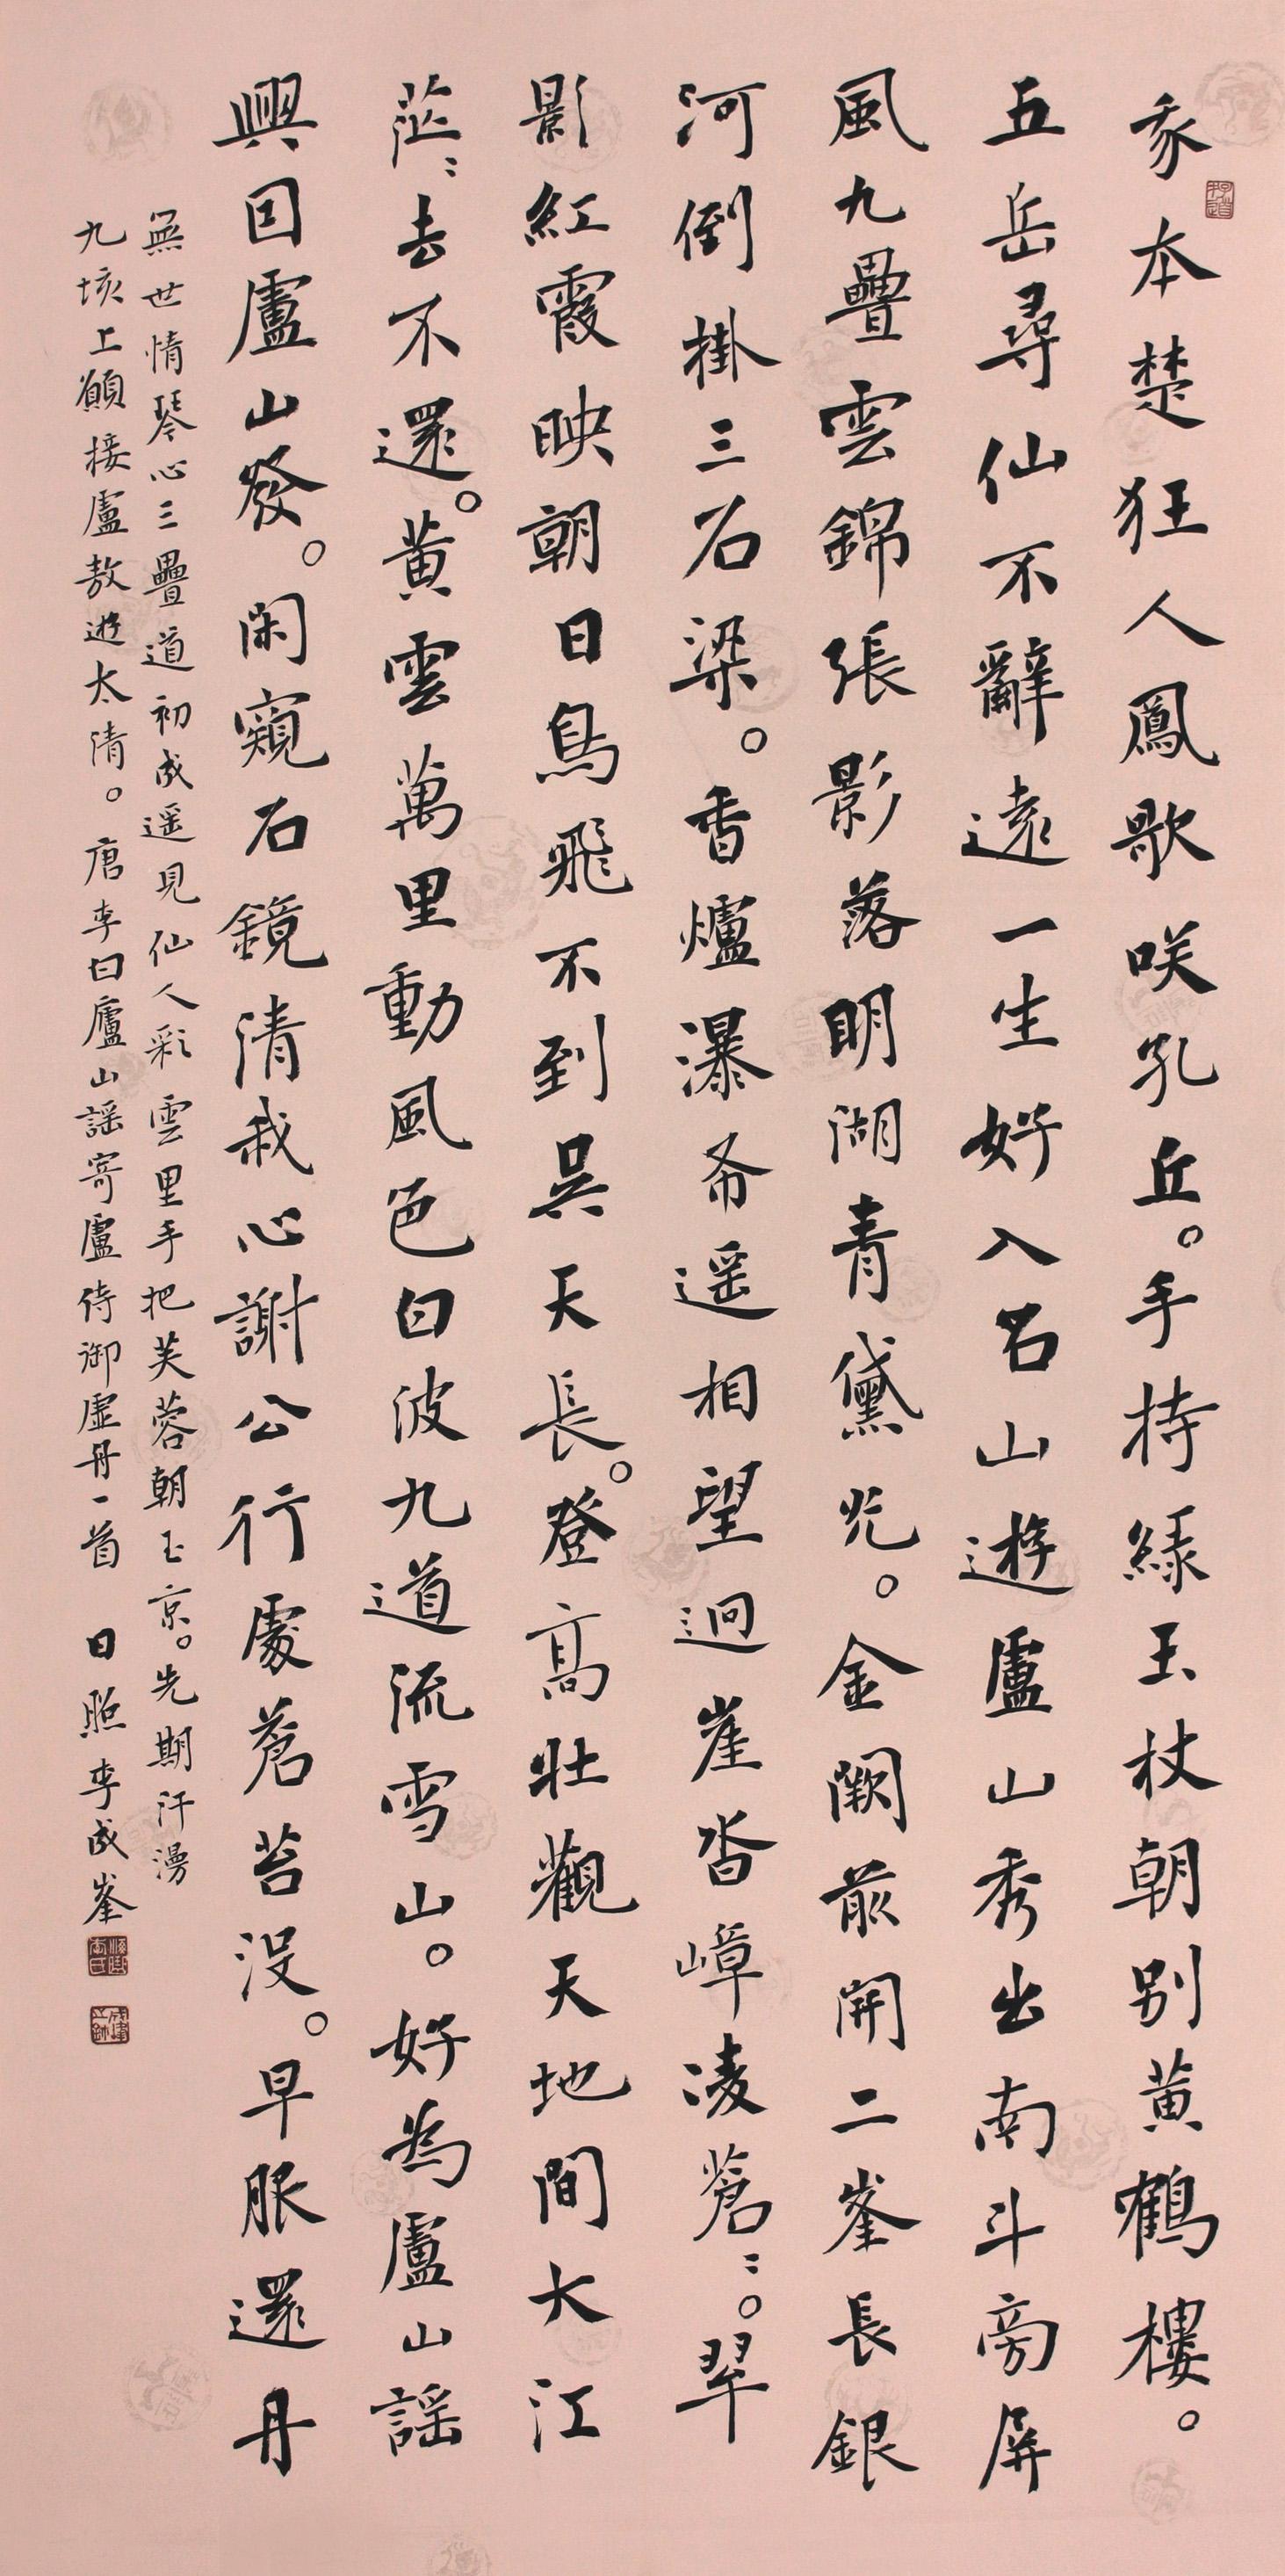 我本楚狂人鳳歌咲孔丘。手持綠玉杖朝別黃鶴樓。
五岳尋仙不辭遠一生好入名山遊廬山秀出南斗旁屏
風九疊雲錦張影落明湖青黛光。金闕前開二峯長銀
河倒掛三石梁。香爐瀑布遥相望迥崖沓嶂凌蒼〻。翠
影紅霞映朝日鳥飛不到吳天長。登高壯觀天地間大江
茫〻去不還。黃雲萬里動風色白波九道流雪山。好為廬山謡
興因廬山發。閑窺石鏡清我心謝公行處蒼苔沒。早服還丹
無世情琴心三疊道初成遥見仙人彩雲里手把芙蓉朝玉京。先期汗漫
九垓上願接盧敖遊太清。唐李白廬山謡寄盧侍御虛舟一首 日照李成峯